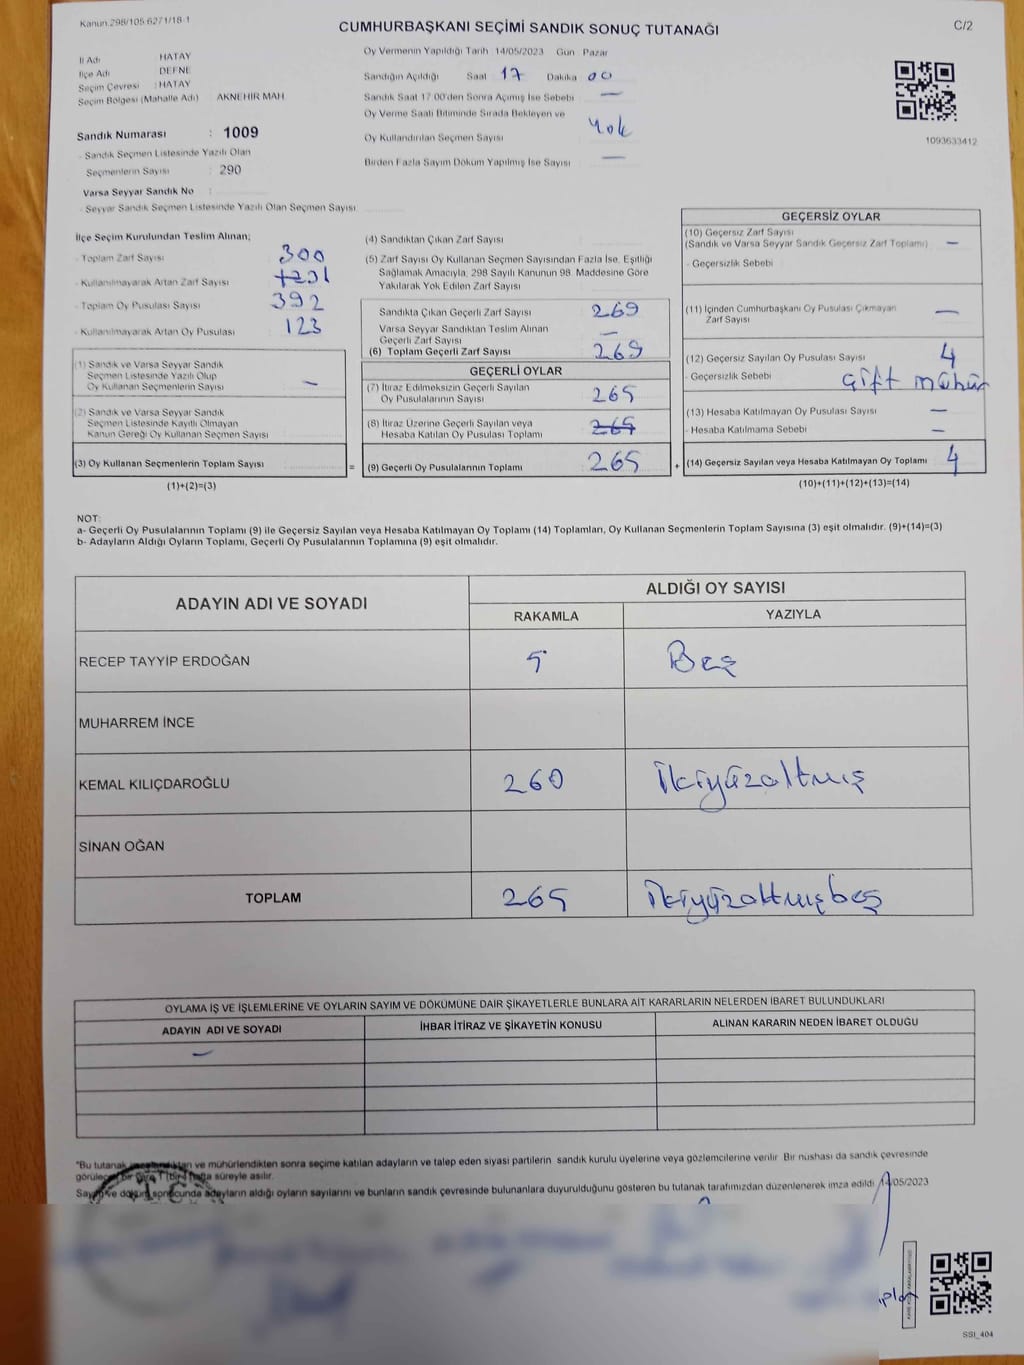 Kanun.298/105.6271/18-1
CUMHURBAŞKANI SEÇİMİ SANDIK SONUÇ TUTANAĞI
C/2
İl Adı HATAY
İlçe Adı DEFNE
Seçim Çevresi : HATAY
Seçim Bölgesi (Mahalle Adı) AKNEHİR MAH
Sandık Numarası : 1009
- Sandık Seçmen Listesinde Yazılı Olan
Seçmenlerin Sayısı : 290
Varsa Seyyar Sandık No :
- Seyyar Sandık Seçmen Listesinde Yazılı Olan Seçmen Sayısı
Oy Vermenin Yapıldığı Tarih 14/05/2023 Gün Pazar
Sandığın Açıldığı Saat 17 Dakika 00
Sandık Saat 17.00'den Sonra Açılmış İse Sebebi —
Oy Verme Saati Bitiminde Sırada Bekleyen ve
Oy Kullandırılan Seçmen Sayısı Yok
Birden Fazla Sayım Döküm Yapılmış İse Sayısı —
1093633412
İlçe Seçim Kurulundan Teslim Alınan;
- Toplam Zarf Sayısı 300
- Kullanılmayarak Artan Zarf Sayısı
- Toplam Oy Pusulası Sayısı 392
- Kullanılmayarak Artan Oy Pusulası 123
(1) Sandık ve Varsa Seyyar Sandık
Seçmen Listesinde Yazılı Olup
Oy Kullanan Seçmenlerin Sayısı —
(2) Sandık ve Varsa Seyyar Sandık
Seçmen Listesinde Kayıtlı Olmayan
Kanun Gereği Oy Kullanan Seçmen Sayısı
(3) Oy Kullanan Seçmenlerin Toplam Sayısı =
(1)+(2)=(3)
(4) Sandıktan Çıkan Zarf Sayısı
(5) Zarf Sayısı Oy Kullanan Seçmen Sayısından Fazla İse, Eşitliği
Sağlamak Amacıyla, 298 Sayılı Kanunun 98. Maddesine Göre
Yakılarak Yok Edilen Zarf Sayısı
Sandıkta Çıkan Geçerli Zarf Sayısı 269
Varsa Seyyar Sandıktan Teslim Alınan
Geçerli Zarf Sayısı —
(6) Toplam Geçerli Zarf Sayısı 269
GEÇERLİ OYLAR
(7) İtiraz Edilmeksizin Geçerli Sayılan
Oy Pusulalarının Sayısı 265
(8) İtiraz Üzerine Geçerli Sayılan veya
Hesaba Katılan Oy Pusulası Toplamı 265
(9) Geçerli Oy Pusulalarının Toplamı 265 +
GEÇERSİZ OYLAR
(10) Geçersiz Zarf Sayısı
(Sandık ve Varsa Seyyar Sandık Geçersiz Zarf Toplamı) —
- Geçersizlik Sebebi
(11) İçinden Cumhurbaşkanı Oy Pusulası Çıkmayan
Zarf Sayısı —
(12) Geçersiz Sayılan Oy Pusulası Sayısı 4
- Geçersizlik Sebebi Çift mühür
(13) Hesaba Katılmayan Oy Pusulası Sayısı —
- Hesaba Katılmama Sebebi —
(14) Geçersiz Sayılan veya Hesaba Katılmayan Oy Toplamı 4
(10)+(11)+(12)+(13)=(14)
NOT:
a- Geçerli Oy Pusulalarının Toplamı (9) ile Geçersiz Sayılan veya Hesaba Katılmayan Oy Toplamı (14) Toplamları, Oy Kullanan Seçmenlerin Toplam Sayısına (3) eşit olmalıdır. (9)+(14)=(3)
b- Adayların Aldığı Oyların Toplamı, Geçerli Oy Pusulalarının Toplamına (9) eşit olmalıdır.
ADAYIN ADI VE SOYADI
ALDIĞI OY SAYISI
RAKAMLA YAZIYLA
RECEP TAYYİP ERDOĞAN 5 Beş
MUHARREM İNCE
KEMAL KILIÇDAROĞLU 260 İkiyüzaltmış
SİNAN OĞAN
TOPLAM 265 İkiyüzaltmışbeş
OYLAMA İŞ VE İŞLEMLERİNE VE OYLARIN SAYIM VE DÖKÜMÜNE DAİR ŞİKAYETLERLE BUNLARA AİT KARARLARIN NELERDEN İBARET BULUNDUKLARI
ADAYIN ADI VE SOYADI İHBAR İTİRAZ VE ŞİKAYETİN KONUSU ALINAN KARARIN NEDEN İBARET OLDUĞU
—
"Bu tutanak ve mühürlendikten sonra seçime katılan adayların ve talep eden siyasi partilerin sandık kurulu üyelerine veya gözlemcilerine verilir. Bir nüshası da sandık çevresinde
görülecek bir yere 1 (bir) hafta süreyle asılır.
Sayım ve döküm sonucunda adayların aldığı oyların sayılarını ve bunların sandık çevresinde bulunanlara duyurulduğunu gösteren bu tutanak tarafımızdan düzenlenerek imza edildi 14/05/2023
SSI_404